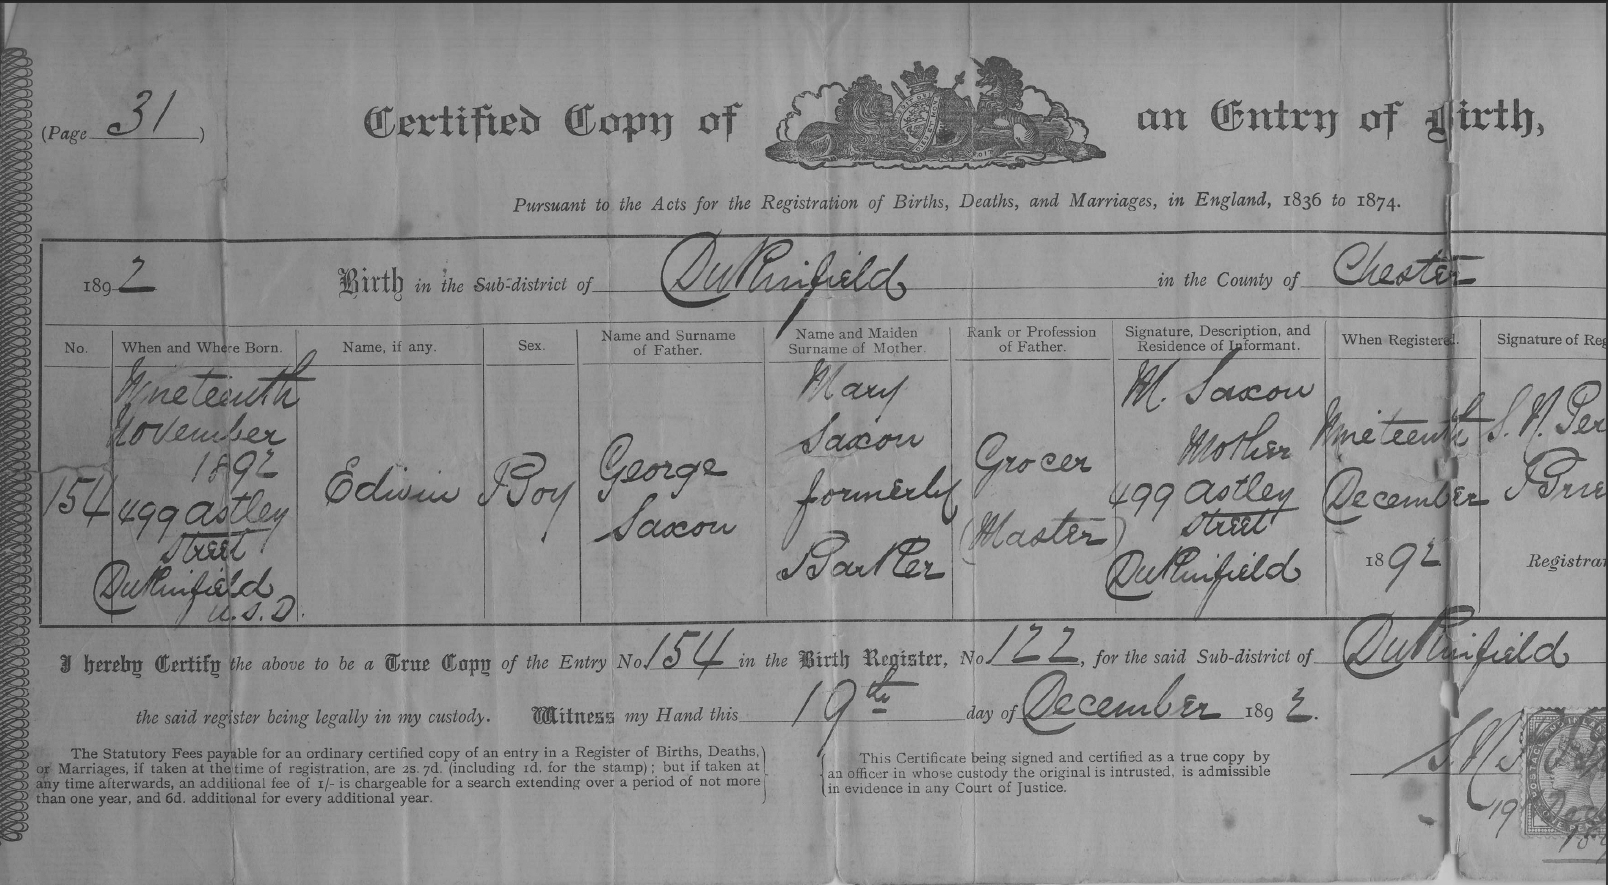 (Page 31)
Certified Copy of an Entry of Birth,
Pursuant to the Acts for the Registration of Births, Deaths, and Marriages, in England, 1836 to 1874.
1892 Birth in the Sub-district of Dukinfield in the County of Chester
No. When and Where Born. Name, if any. Sex. Name and Surname of Father. Name and Maiden Surname of Mother. Rank or Profession of Father. Signature, Description, and Residence of Informant. When Registered. Signature of Reg
154
Nineteenth
November
1892
499 Astley
Street
Dukinfield
U.S.D.
Edwin
Boy
George
Saxon
Mary
Saxon
formerly
Barker
Grocer
(Master)
M. Saxon
Mother
499 Astley
Street
Dukinfield
Nineteenth
December
1892
S. N.
Registrar
I hereby Certify the above to be a True Copy of the Entry No 154 in the Birth Register, No 122, for the said Sub-district of Dukinfield
the said register being legally in my custody. Witness my Hand this 19th day of December 1892.
The Statutory Fees payable for an ordinary certified copy of an entry in a Register of Births, Deaths,
or Marriages, if taken at the time of registration, are 2s. 7d. (including 1d. for the stamp); but if taken at
any time afterwards, an additional fee of 1/- is chargeable for a search extending over a period of not more
than one year, and 6d. additional for every additional year.
This Certificate being signed and certified as a true copy by
an officer in whose custody the original is intrusted, is admissible
in evidence in any Court of Justice.
19